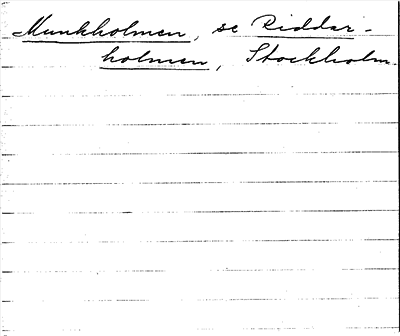 Munkholmen, se Riddar-
holmen, Stockholm.